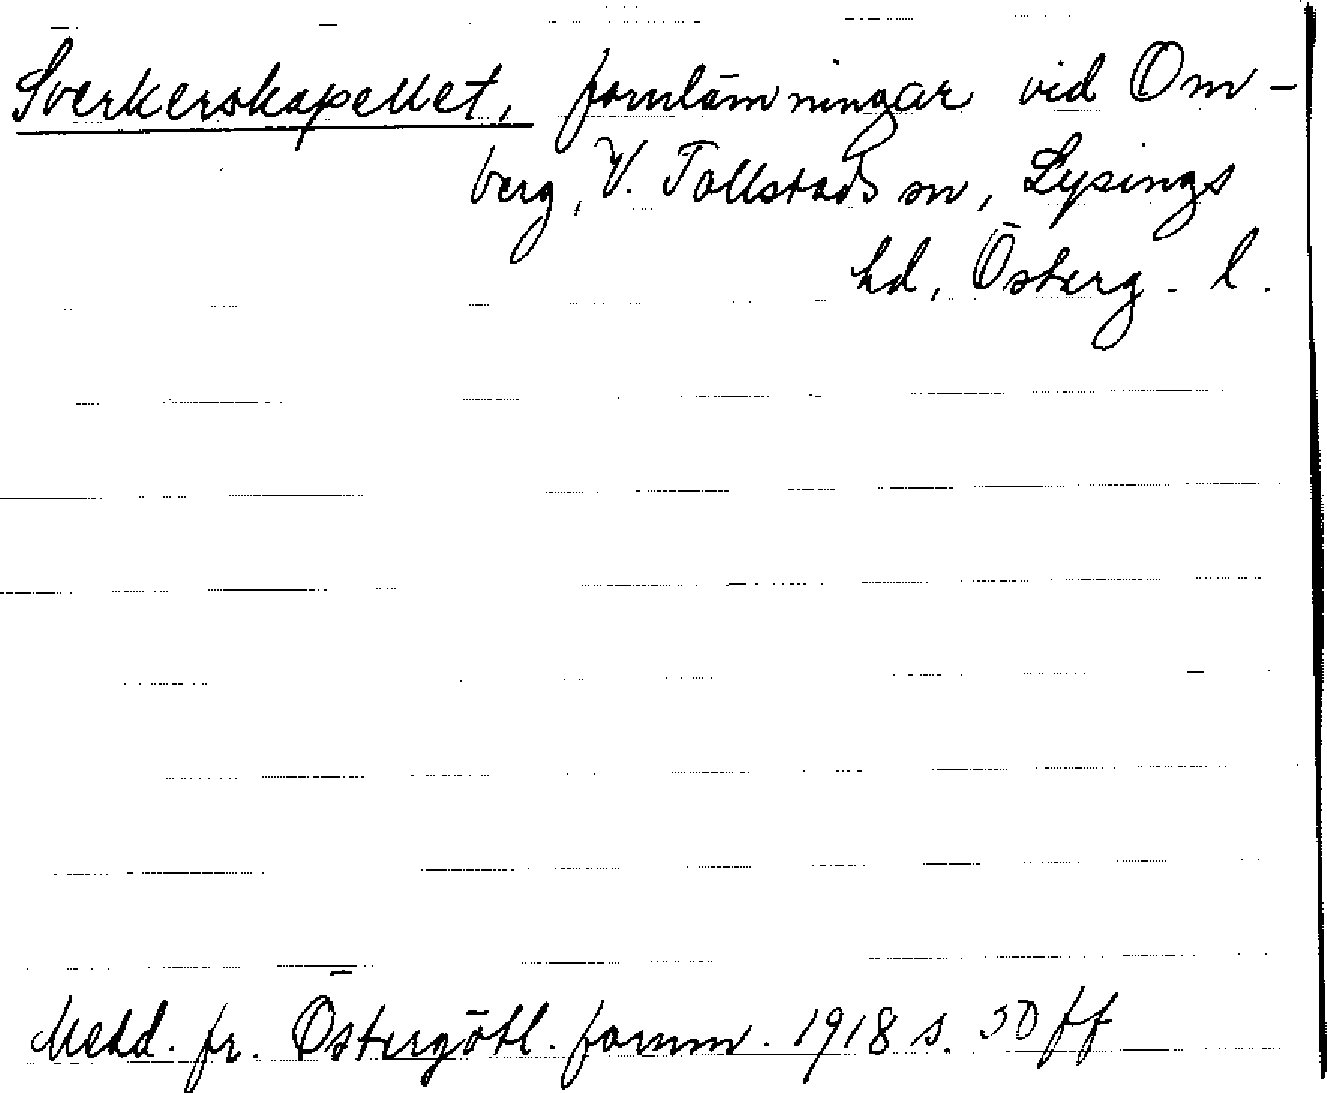 Sverkerskapellet, fornlämningar vid Om-
berg, V. Tollstads sn, Lysings
hd, Österg. l.
Medd. fr. Östergötl. fornm. 1918 s. 50 ff